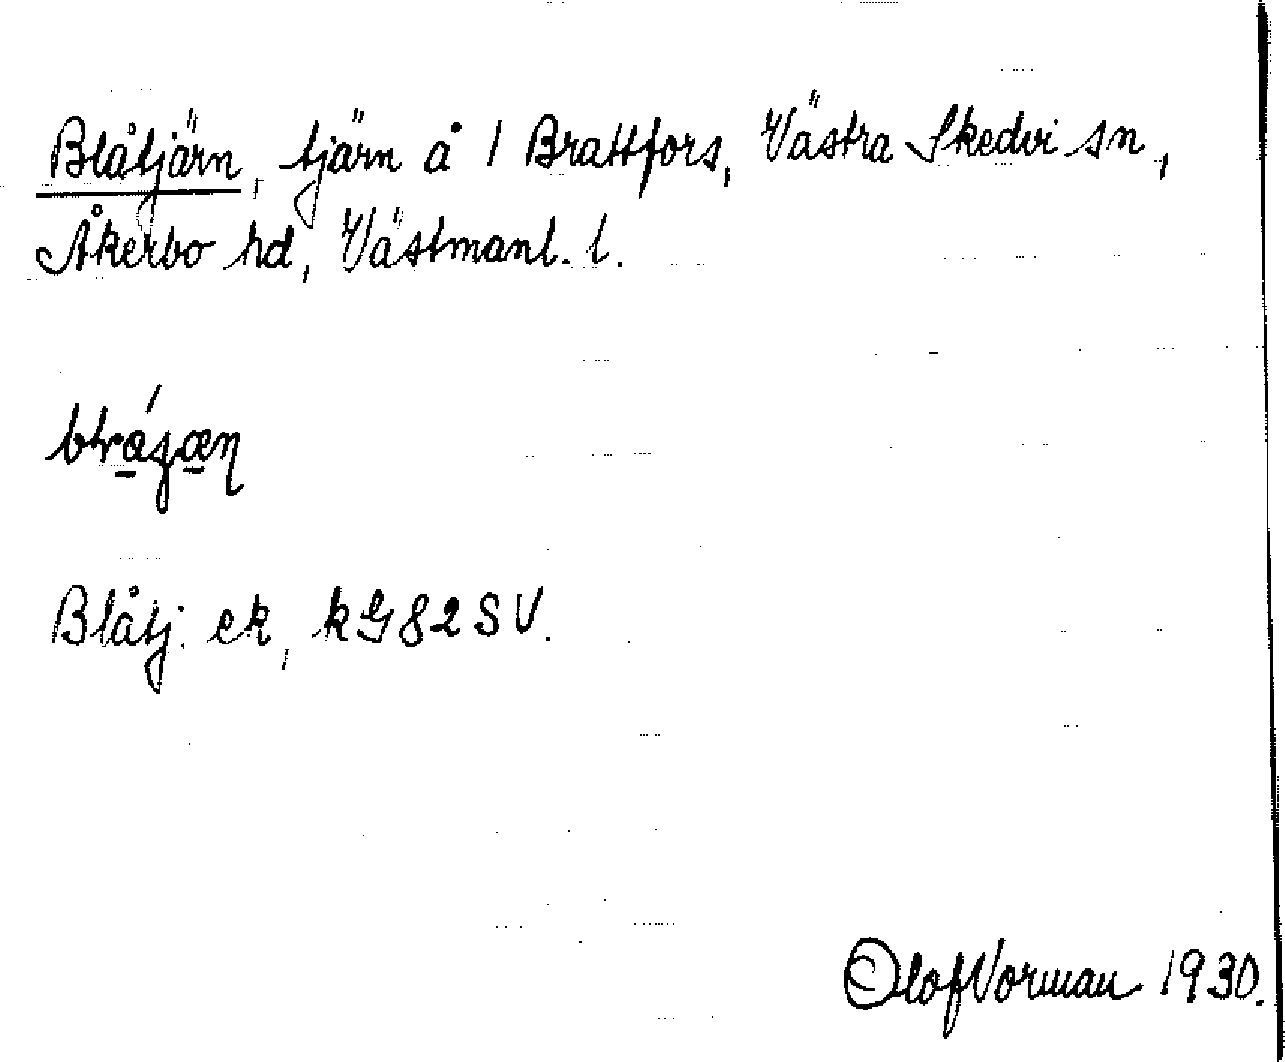 Blåtjärn, tjärn å 1 Brattfors, Västra Skedvi sn,
Åkerbo hd, Västmanl. l.
Blåtj. ek, kG82SV.
Olof Vorman 1930.